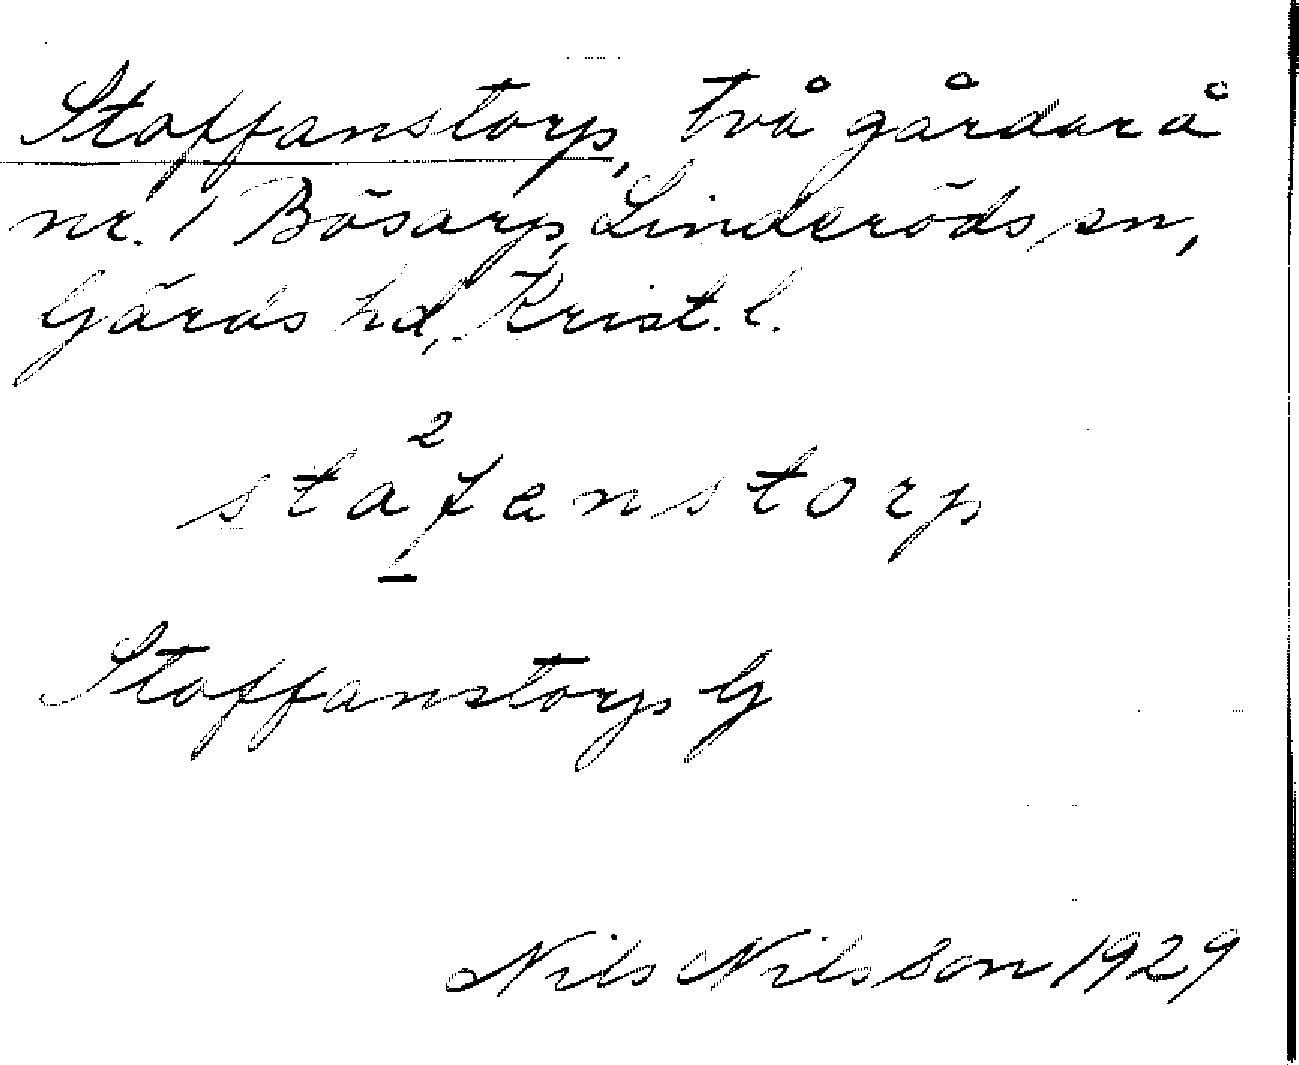 Staffanstorp, Två gårdar å
nr. 1 Bösarp, Linderöds sn,
Gärds hd, Krist. l.
sta²fanstorp
Staffanstorp G
Nils Nilsson 1929